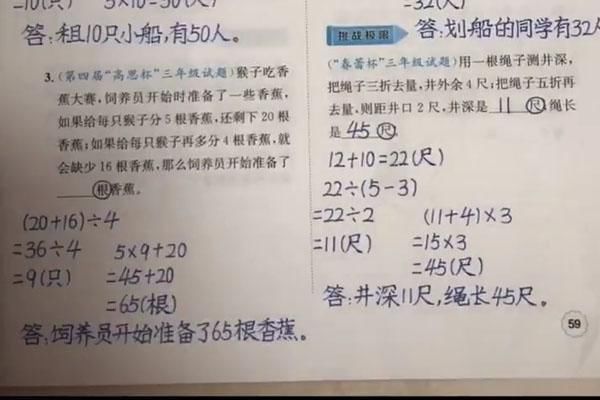 =10(只) 5×10=50(人)
答:租10只小船,有50人。
3.(第四届“高思杯”三年级试题)猴子吃香
蕉大赛,饲养员开始时准备了一些香蕉,
如果给每只猴子分5根香蕉,还剩下20根
香蕉;如果给每只猴子再多分4根香蕉,就
会缺少16根香蕉,那么饲养员开始准备了
根香蕉。
(20+16)÷4
=36÷4 5×9+20
=9(只) =45+20
=65(根)
答:饲养员开始准备了65根香蕉。
=32(人)
答:划船的同学有32人
挑战极限
(“春蕾杯”三年级试题)用一根绳子测井深,
把绳子三折去量,井外余4尺;把绳子五折再
去量,则距井口2尺,井深是 11 尺,绳长
是 45 尺。
12+10=22(尺)
22÷(5-3)
=22÷2 (11+4)×3
=11(尺) =15×3
=45(尺)
答:井深11尺,绳长45尺。
59